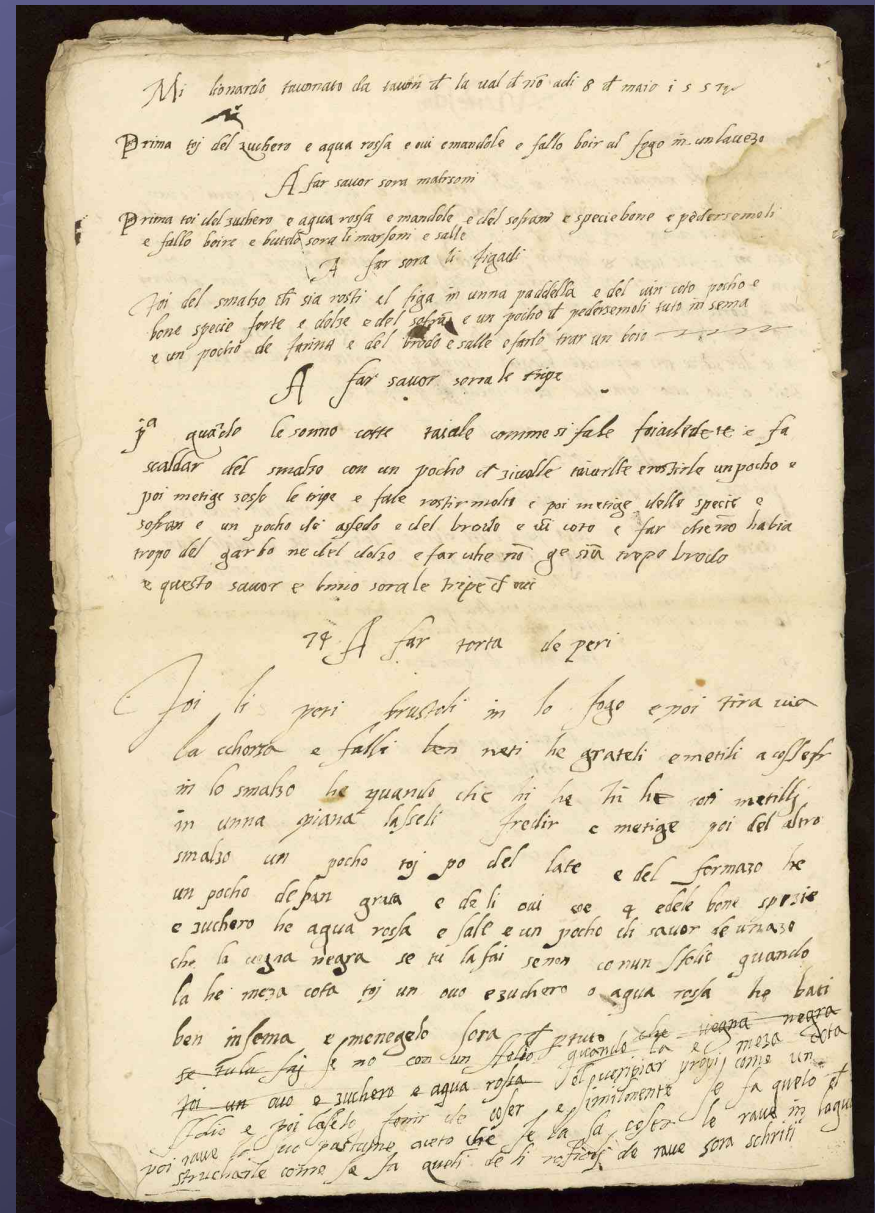 Mi lionardo tavonato da tavón đ la val đ nō adi 8 đ maio 1557
Prima toj del zuchero e aqua rossa e oui e mandole e fallo boir al fogo in un lavezo
A far savor sora marsoni
Prima toi del zuchero e aqua rossa e mandole e del sofran e specie bone e pedersemoli
e fallo boire e butolo sora li marsoni e salle
A far sora li figadi
Toi del smalzo ch sia rosti el figa in unna paddella e del vin coto pocho e
bone specie forte e dolze e del sofrā e un pocho đ pedersemoli tuto insema
e un pocho de farina e del brodo e salle e farlo trar un boio
A far savor sorra le tripe
pª quādo le sonno cotte taiale comme si fa le e fa
scaldar del smalzo con un pocho đ zivolle e rostirle un pocho e
poi metige zoso le tripe e fale rostir molto e poi metige delle specie e
sofran e un pocho di assedo e del brodo e vī coto e far che nō habia
tropo del garbo ne del dolzo e far che nō ge sia tropo brodo
e questo savor e bono sora le tripe đ oui
74 A far torta de peri
Toi li peri brustoli in lo fogo e poi tira via
la schorza e falli ben neti he grateli e metili a cosser
in lo smalzo he quando che li he roti metilli
in unna piana lasseli fredir e metige poi del altro
smalzo un pocho toj po del late e del formazo he
un pocho de pan grata e de li oui 4 e dele bone spezie
e zuchero he aqua rossa e sale e un pocho di savor de
che la vegna negra se tu la fai se non con un stolio quando
la he meza cota toj un ovo e zuchero o aqua rossa he bati
ben insema e menegelo sora đ ptuto che vegna negra
se tu la faj se no con un stolio quando la e meza cota
toi un ovo e zuchero e aqua rossa propi come un
stolio e poi lasselo fenir de coser e similmente se fa quelo đ
poi rave lo suo pastume aceto che se la fa coser le rave in laqua
strucharle come se fa queli de li rofioli de rave sora schriti